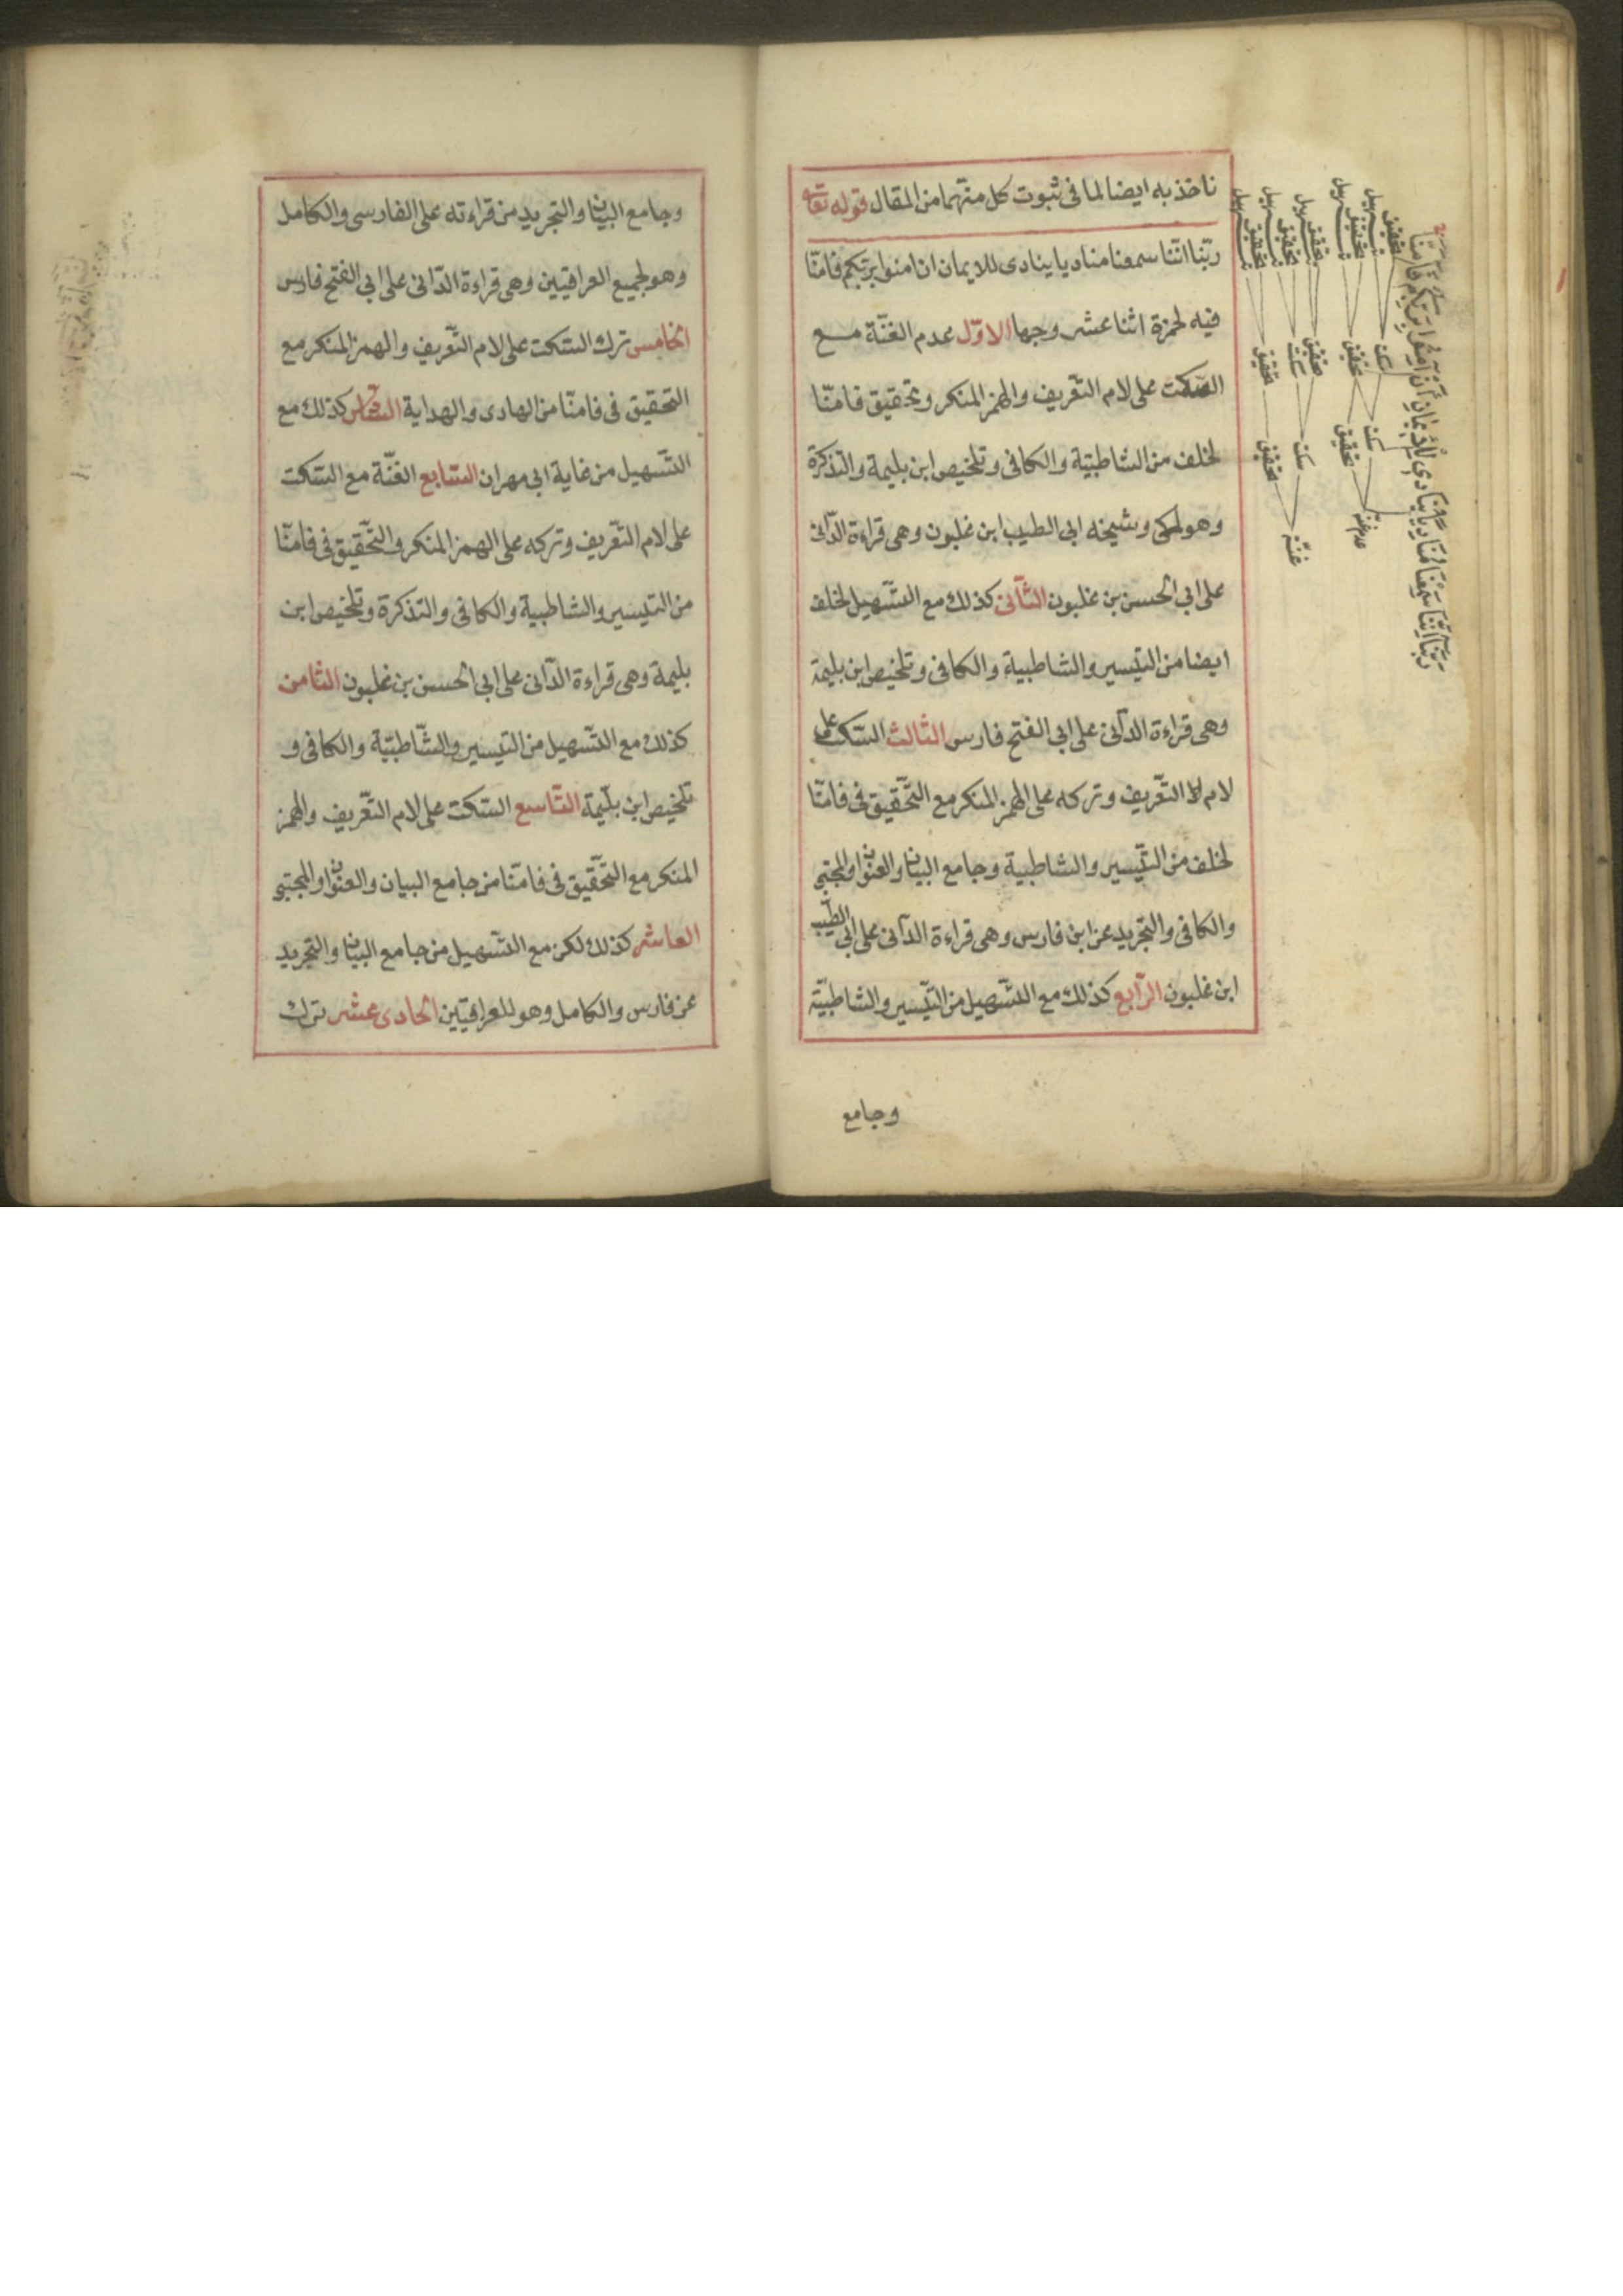 ناخذ به ايضا لما فى ثبوت كل منهما من المقال قوله تعالى
ربّنا انّنا سمعنا مناديا ينادى للايمان ان امنوا بربّكم فامنّا
فيه لحمزة اثنا عشر وجها الاوّل عدم الغنّة مع
السّكت على لام التّعريف والهمز المنكر وتحقيق فامنّا
لخلف من الشاطبيّة والكافى وتلخيص ابن بليمة والتذكرة
وهو لمكى وشيخه ابى الطيب ابن غلبون وهى قراءة الدّانى
على ابى الحسن بن غلبون الثّانى كذلك مع التسّهيل لخلف
ايضا من التيسير والشاطبية والكافى وتلخيص ابن بليمة
وهى قراءة الدّانى على ابى الفتح فارس الثالث السّكت على
لام التّعريف وتركه على الهمز المنكر مع التّحقيق فى فامنّا
لخلف من التّيسير والشاطبية وجامع البيان والعنوان والمجتبى
والكافى والتجريد عن ابن فارس وهى قراءة الدّانى على ابى الطيّب
ابن غلبون الرّابع كذلك مع التسّهيل من التيّسير والشاطبيّة
وجامع
ربّنا انّنا سمعنا مناديا ينادى للايمان ان امنوا بربّكم فامنّا
تحقيق تسهيل تحقيق تسهيل تحقيق تسهيل تحقيق تسهيل تحقيق تسهيل
سكت تحقيق تحقيق سكت تحقيق
سكت تحقيق سكت تحقيق
عدم غنّه غنّه
وجامع البيان والتجريد من قراءته على الفارسى والكامل
وهو لجميع العراقيين وهى قراءة الدّانى على ابى الفتح فارس
الخامس ترك السّكت على لام التّعريف والهمز المنكر مع
التحقيق فى فامنّا من الهادى والهداية السّادس كذلك مع
التسّهيل من غاية ابى مهران السّابع الغنّة مع السّكت
على لام التّعريف وتركه على الهمز المنكر والتّحقيق فى فامنّا
من التيسير والشاطبية والكافى والتذكرة وتلخيص ابن
بليمة وهى قراءة الدّانى على ابى الحسن بن غلبون الثّامن
كذلك مع التسّهيل من التيسير والشّاطبيّة والكافى و
تلخيص ابن بليّمة التّاسع السّكت على لام التّعريف والهمز
المنكر مع التّحقيق فى فامنّا من جامع البيان والعنوان والمجتبى
العاشر كذلك لكن مع التسّهيل من جامع البيان والتجريد
عن فارس والكامل وهو للعراقيّين الحادى عشر ترك